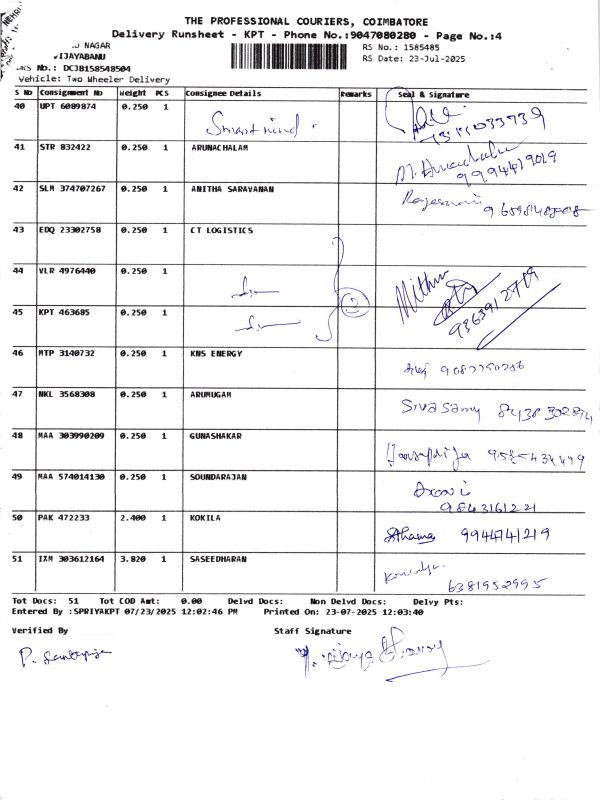 THE PROFESSIONAL COURIERS, COIMBATORE
Delivery Runsheet - KPT - Phone No.:9047080280 - Page No.:4
NAGAR
RS No.: 1585485
VIJAYABANU
RS Date: 23-Jul-2025
No.: DCJB158548504
Vehicle: Two Wheeler Delivery
S No Consignment No Weight PCS Consignee Details Remarks Seal & Signature
40 UPT 6089874 0.250 1 Smartmind
41 STR 832422 0.250 1 ARUNACHALAM
42 SLM 374707267 0.250 1 ANITHA SARAVANAN
43 EDQ 23302758 0.250 1 CT LOGISTICS
44 VLR 4976440 0.250 1 Mithun
45 KPT 463685 0.250 1
46 MTP 3140732 0.250 1 KNS ENERGY
47 NKL 3568308 0.250 1 ARUMUGAM Sivasamy
48 MAA 303990209 0.250 1 GUNASHAKAR
49 MAA 574014130 0.250 1 SOUNDARAJAN
9843161221
50 PAK 472233 2.400 1 KOKILA 9944741219
51 IXM 303612164 3.820 1 SASEEDHARAN
6381952995
Tot Docs: 51 Tot COD Amt: 0.00 Delvd Docs: Non Delvd Docs: Delvy Pts:
Entered By :SPRIYAKPT 07/23/2025 12:02:46 PM Printed On: 23-07-2025 12:03:40
Verified By Staff Signature